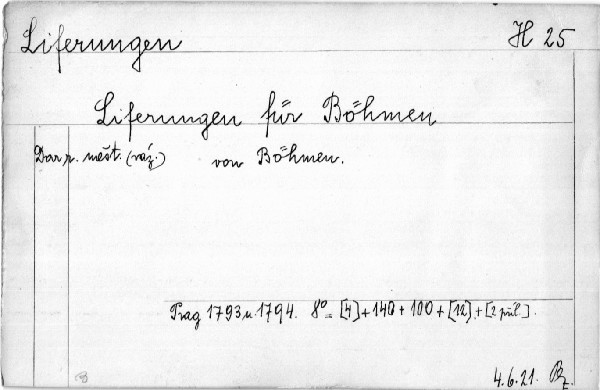 Liferungen H 25
Liferungen für Böhmen
Dar p. měst. (váz.) von Böhmen.
Prag 1793 u. 1794. 8° = [4] + 140 + 100 + [12] + [2 příl].
4.6.21.